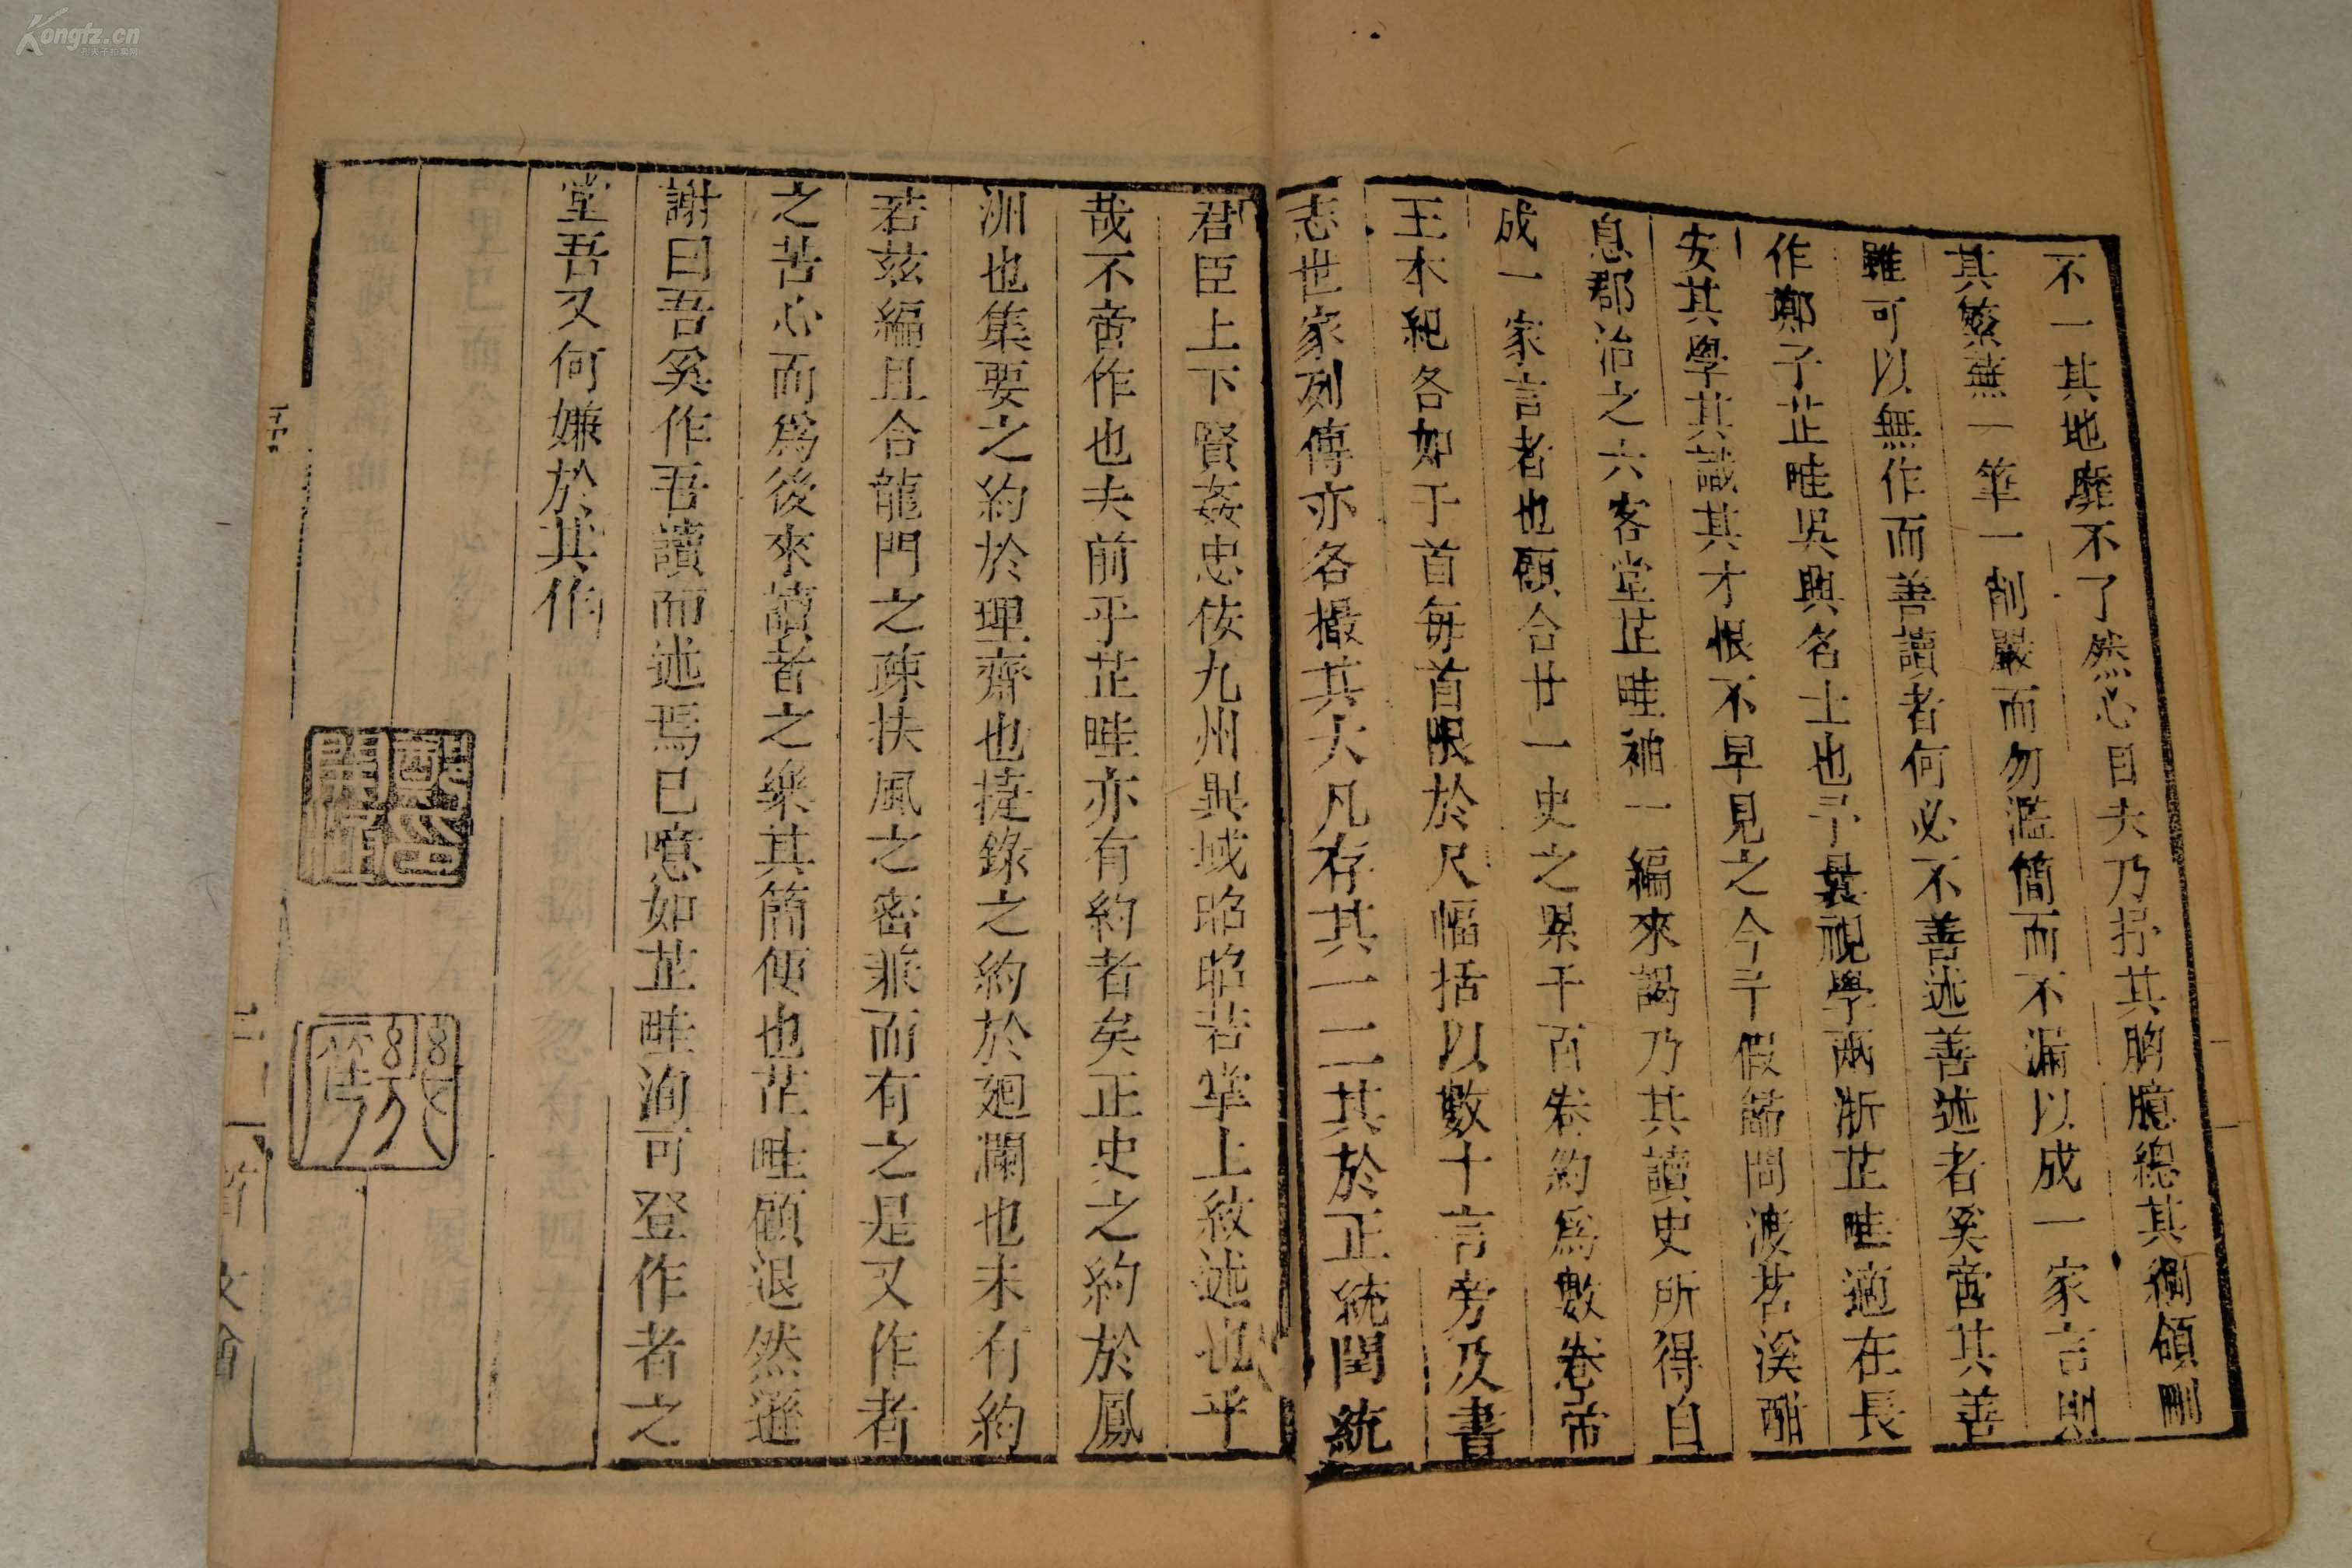 不一其地靡不了然心目夫乃抒其胸臆總其綱領刪
其繁蕪一筆一削嚴而勿濫簡而不漏以成一家言則
雖可以無作而善讀者何必不善述善述者奚啻其善
作鄭子芷畦吳興名士也予曩視學兩浙芷畦適在長
安其學其識其才恨不早見之今予假歸問渡苕溪酣
息郡治之六客堂芷畦袖一編來謁乃其讀史所得自
成一家言者也願合廿一史之累千百卷約為數卷帝
王本紀各如干首每首限於尺幅括以數十言旁及書
志世家列傳亦各撮其大凡存其一二其於正統閏統
君臣上下賢姦忠佞九州異域昭昭若掌上紋述也乎
哉不啻作也夫前乎芷畦亦有約者矣正史之約於鳳
洲也集要之約於理齋也捷錄之約於廻瀾也未有約
若茲編且合龍門之疎扶風之密兼而有之是又作者
之苦心而為後來讀者之樂其簡便也芷畦顧退然遜
謝曰吾奚作吾讀而述焉已噫如芷畦洵可登作者之
堂吾又何嫌於其作
Kongfz.cn